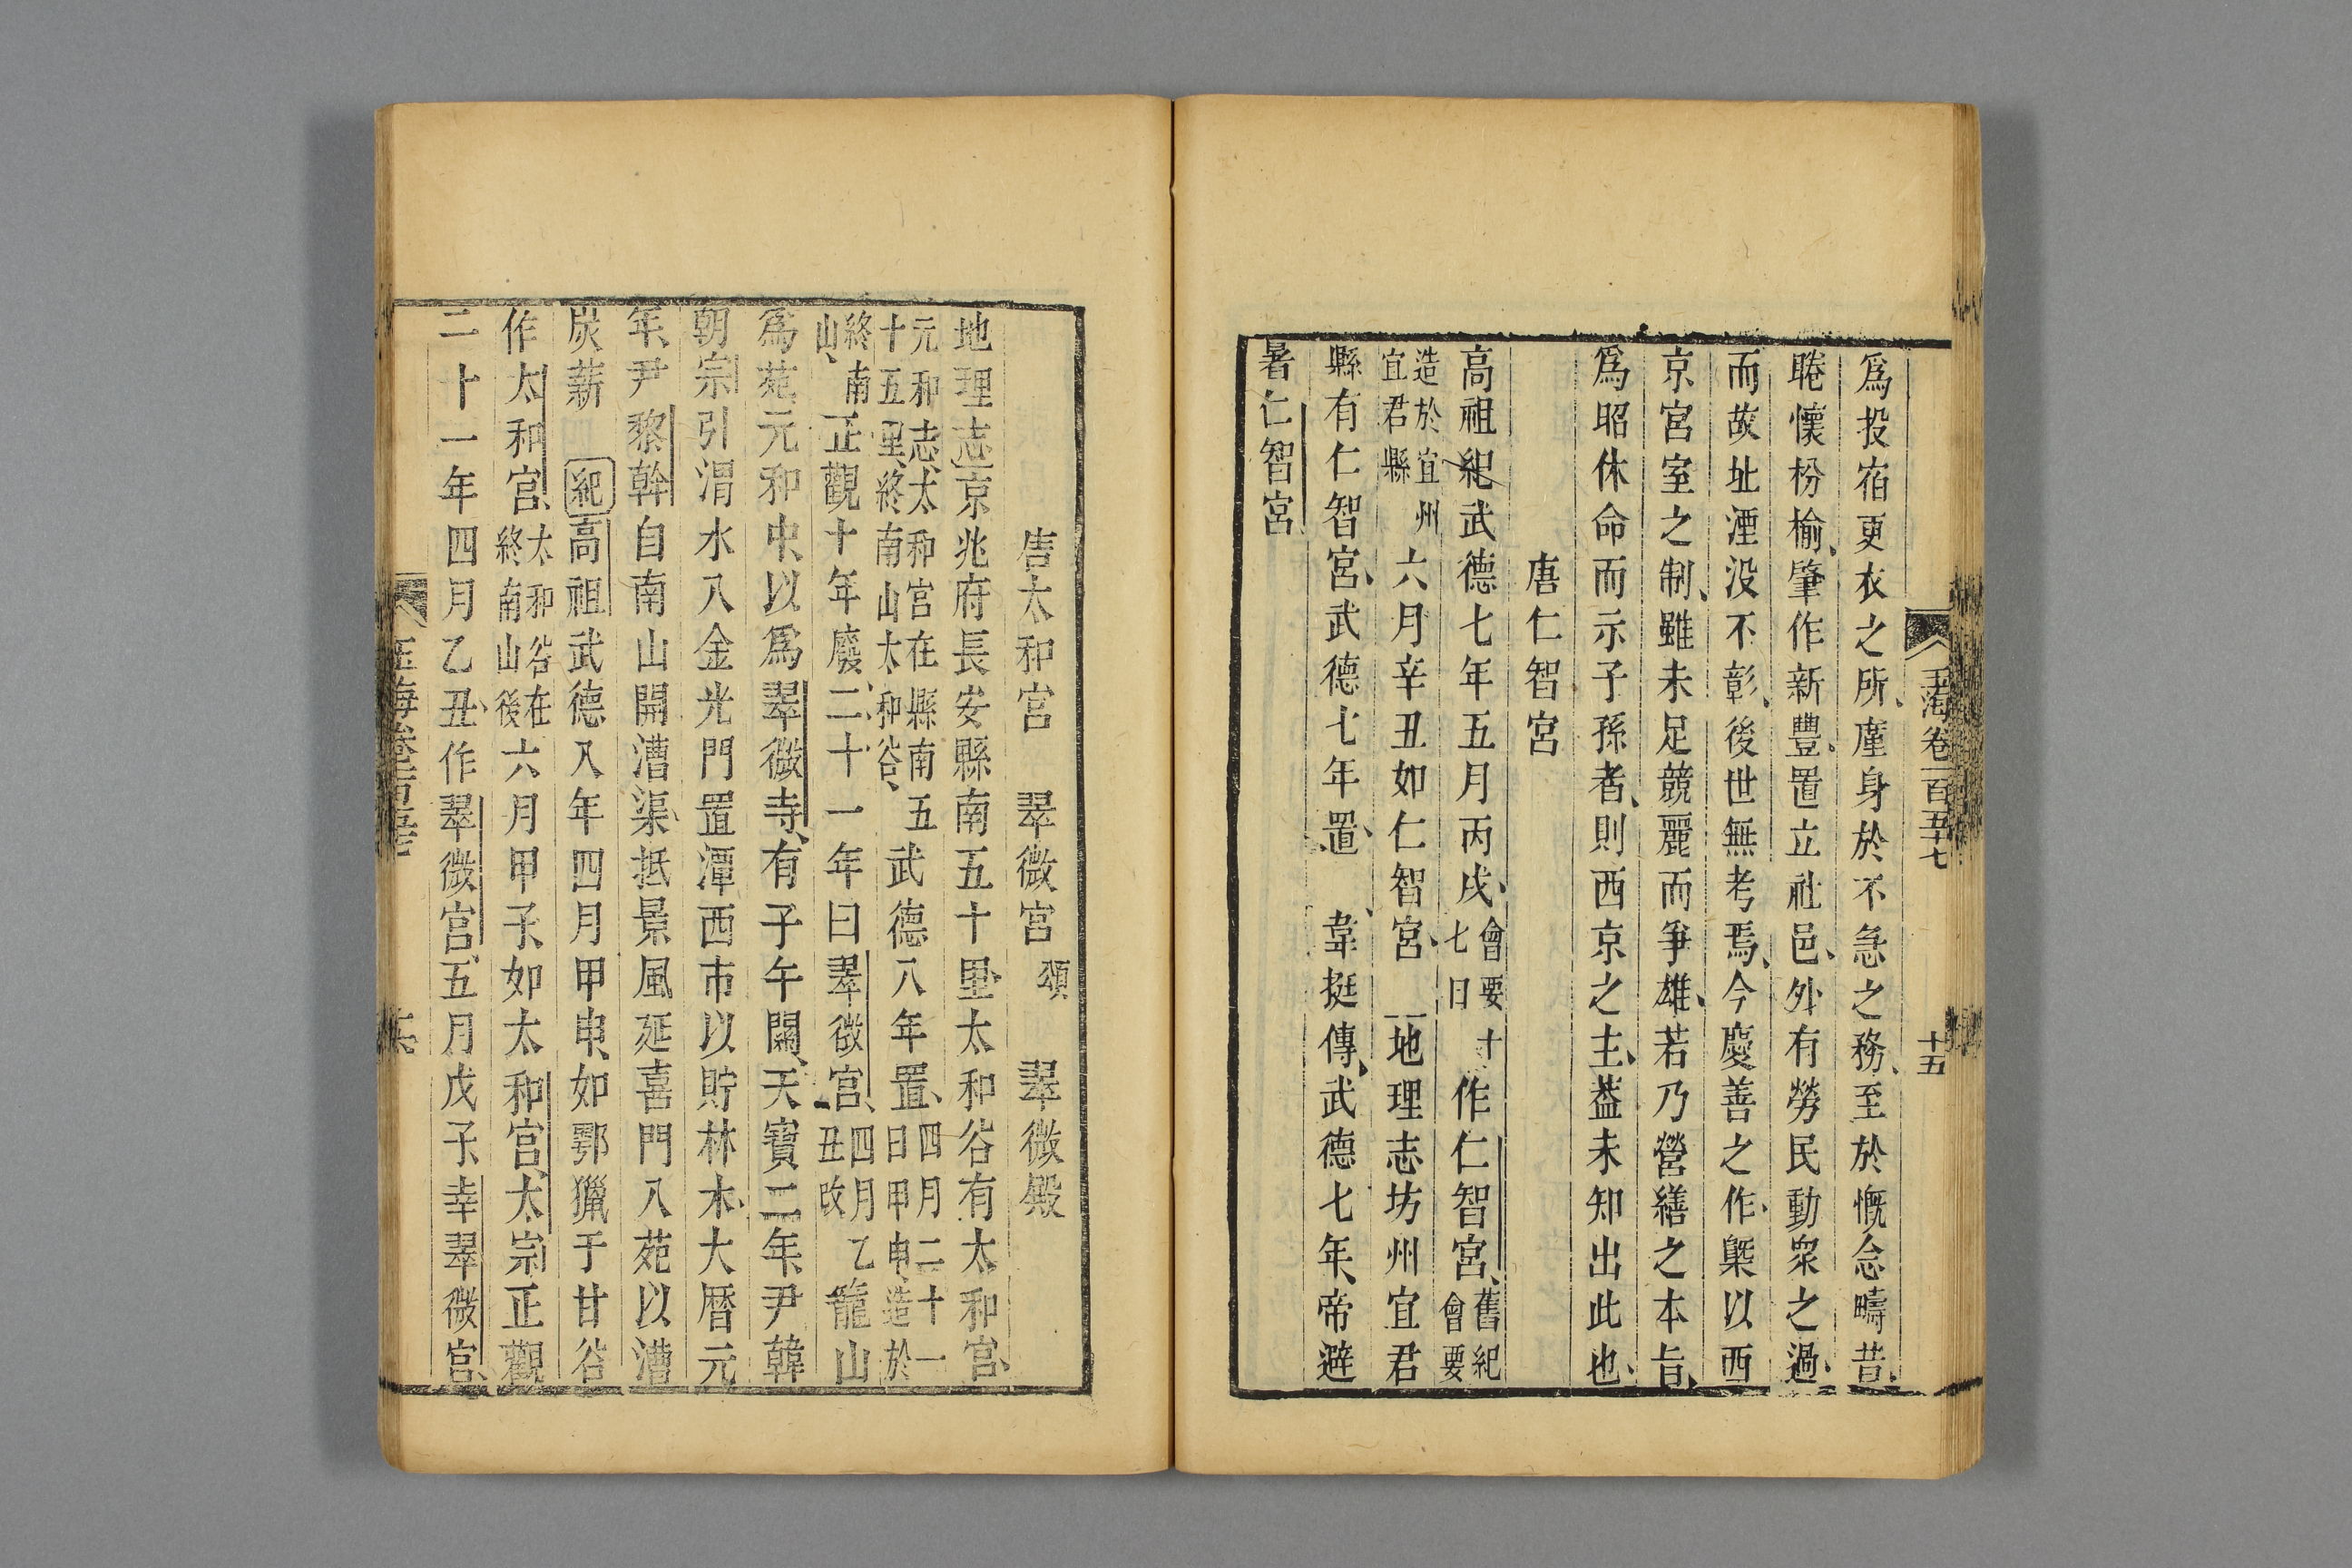 玉海卷一百五十七 十五
爲投宿更衣之所、廑身於不急之務、至於慨念疇昔、
睠懷枌榆、肇作新豐、置立社邑、外有勞民動衆之過、
而故址湮没不彰、後世無考焉、今慶善之作、槩以西
京宮室之制、雖未足競麗而爭雄、若乃營繕之本旨、
爲昭休命而示子孫者、則西京之主、葢未知出此也、
唐仁智宮
高祖紀武德七年五月丙戌、會要十七日作仁智宮、舊紀會要
造於宜州宜君縣六月辛丑如仁智宮、地理志坊州宜君
縣有仁智宮、武德七年置、韋挺傳、武德七年、帝避
暑仁智宮
唐太和宮 翠微宮 頌 翠微殿
地理志京兆府長安縣南五十里、太和谷有太和宮、
元和志、太和宮在縣南五十五里、終南山太和谷、武德八年置、四月二十一日甲申、造於
終南山、正觀十年廢、二十一年曰翠微宮、四月乙丑改籠山
爲苑元和中、以爲翠微寺、有子午關、天寶二年、尹韓
朝宗引渭水入金光門置潭西市以貯林木、大曆元
年、尹黎幹自南山開漕渠、抵景風延喜門入苑以漕
炭薪 紀高祖武德八年四月甲申、如鄠獵于甘谷
作太和宮、太和谷在終南山後六月甲子、如太和宮、太宗正觀
二十一年四月乙丑、作翠微宮、五月戊子幸翠微宮、
玉海卷一百五十七 十六